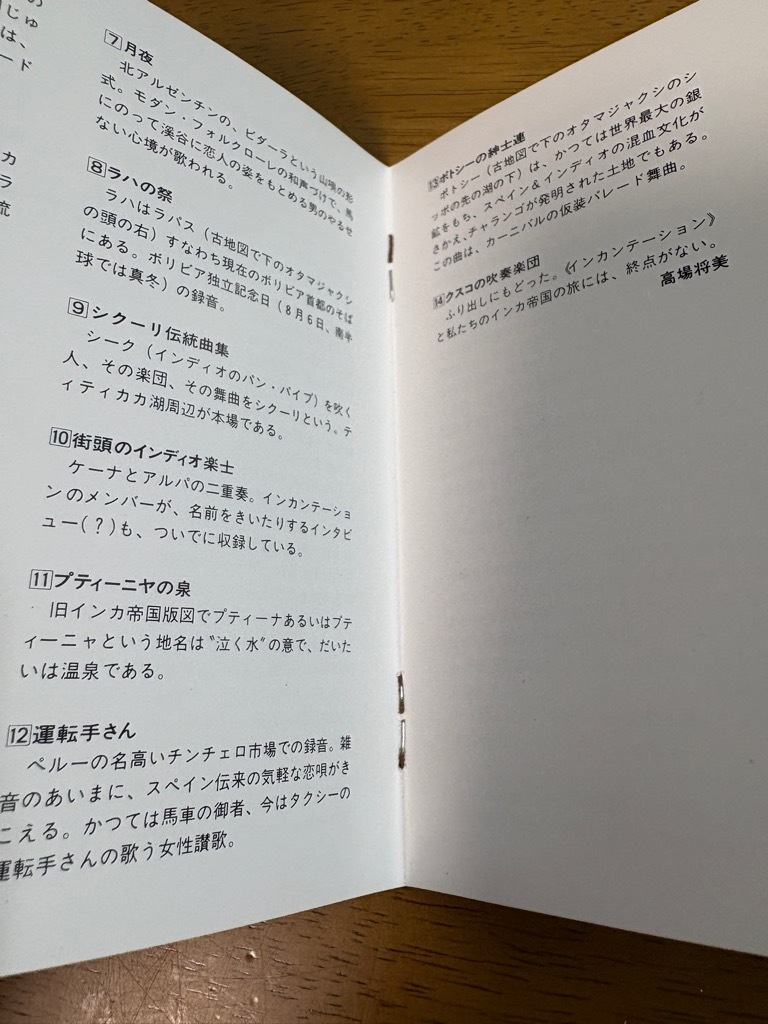 の
じゅ
は、
ード
カ
ラ
流
7月夜
北アルゼンチンの、ビダーラという山唄の形
式。モダン・フォルクローレの和声づけで、馬
にのって渓谷に恋人の姿をもとめる男のやるせ
ない心境が歌われる。
8ラハの祭
ラハはラパス（古地図で下のオタマジャクシ
の頭の右）すなわち現在のボリビア首都のそば
にある。ボリビア独立記念日（8月6日、南半
球では真冬）の録音。
9シクーリ伝統曲集
シーク（インディオのパン・パイプ）を吹く
人、その楽団、その舞曲をシクーリという。テ
ィティカカ湖周辺が本場である。
10街頭のインディオ楽士
ケーナとアルパの二重奏。インカンテーショ
ンのメンバーが、名前をきいたりするインタビ
ュー(？)も、ついでに収録している。
11プティーニヤの泉
旧インカ帝国版図でプティーナあるいはプテ
ィーニャという地名は〝泣く水〟の意で、だいた
いは温泉である。
12運転手さん
ペルーの名高いチンチェロ市場での録音。雑
音のあいまに、スペイン伝来の気軽な恋唄がき
こえる。かつては馬車の御者、今はタクシーの
運転手さんの歌う女性讃歌。
13ポトシーの紳士連
ポトシー（古地図で下のオタマジャクシのシ
ッポの先の湖の下）は、かつては世界最大の銀
鉱をもち、スペイン＆インディオの混血文化が
さかえ、チャランゴが発明された土地でもある。
この曲は、カーニバルの仮装パレード舞曲。
14クスコの吹奏楽団
ふり出しにもどった。《インカンテーション》
と私たちのインカ帝国の旅には、終点がない。
高場将美